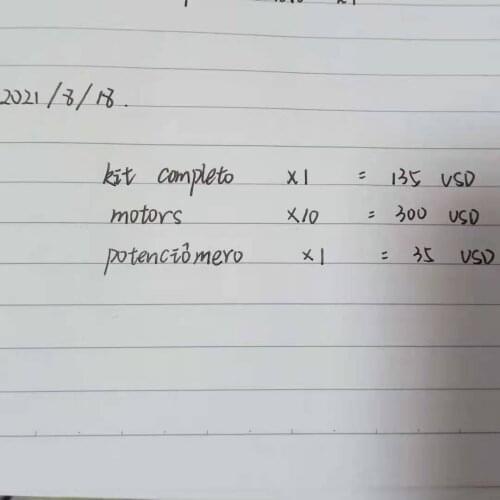 2021/8/18.
kit completo x1 = 135 USD
motors x10 = 300 USD
potenciômero x1 = 35 USD